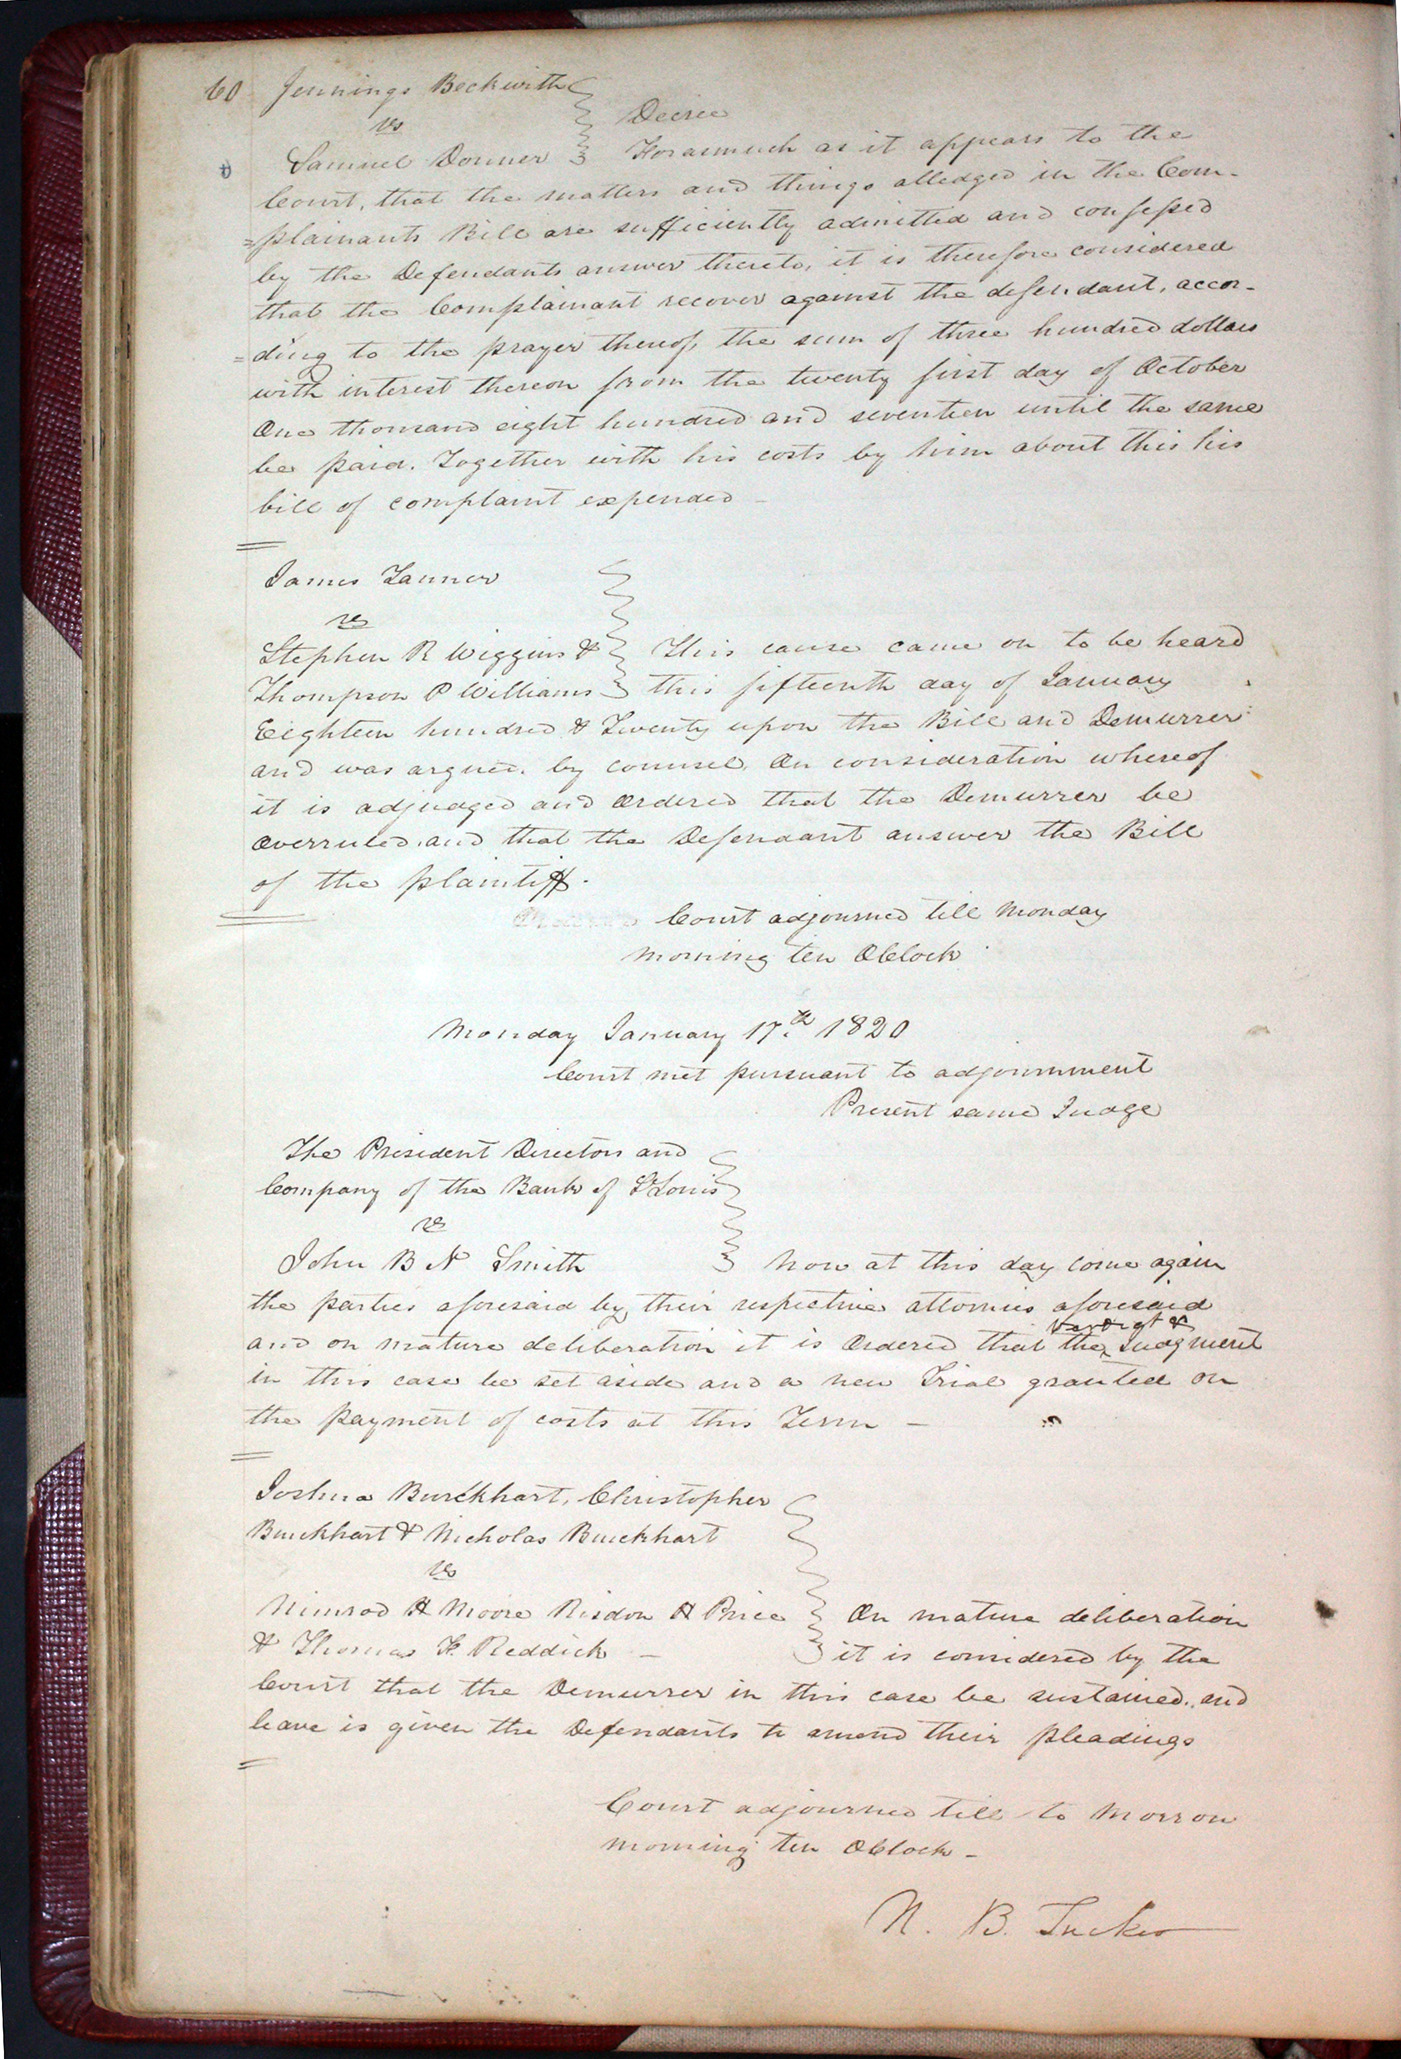 60 Jennings Beckwith
vs Decree
Samuel Donner Forasmuch as it appears to the
Court, that the matters and things alledged in the Com-
=plainants Bill are sufficiently admitted and confessed
by the Defendants answer thereto, it is therefore considered
that the Complainant recover against the defendant, accor-
=ding to the prayer thereof, the sum of three hundred dollars
with interest thereon from the twenty first day of October
One thousand eight hundred and seventeen until the same
be paid. Together with his costs by him about this his
bill of complaint expended -
James Tanner
vs
Stephen R Wiggins & This cause came on to be heard
Thompson P Williams this fifteenth day of January
Eighteen hundred & Twenty upon the Bill and Demurrer
and was argued, by counsel, On consideration whereof
it is adjudged and Ordered that the Demurrer be
overruled, and that the Defendant answer the Bill
of the plaintiff.
Court adjourned till Monday
morning ten OClock
Monday January 17.th 1820
Court met pursuant to adjournment
Present same Judge
The President Directors and
Company of the Bank of St Louis
vs
John B N Smith Now at this day come again
the parties aforesaid by their respective attornies aforesaid
Verdict &
and on mature deliberation it is Ordered that the Judgment
in this case be set aside and a new Trial granted on
the payment of costs at this Term -
Joshua Burckhart, Christopher
Burckhart & Nicholas Burckhart
vs
Nimrod H Moore Risdon H Price On mature deliberation
& Thomas F. Reddick - it is considered by the
Court that the Demurrer in this case be sustained, and
leave is given the Defendants to amend their pleadings
Court adjourned till to Morrow
morning ten OClock -
N. B. Tucker